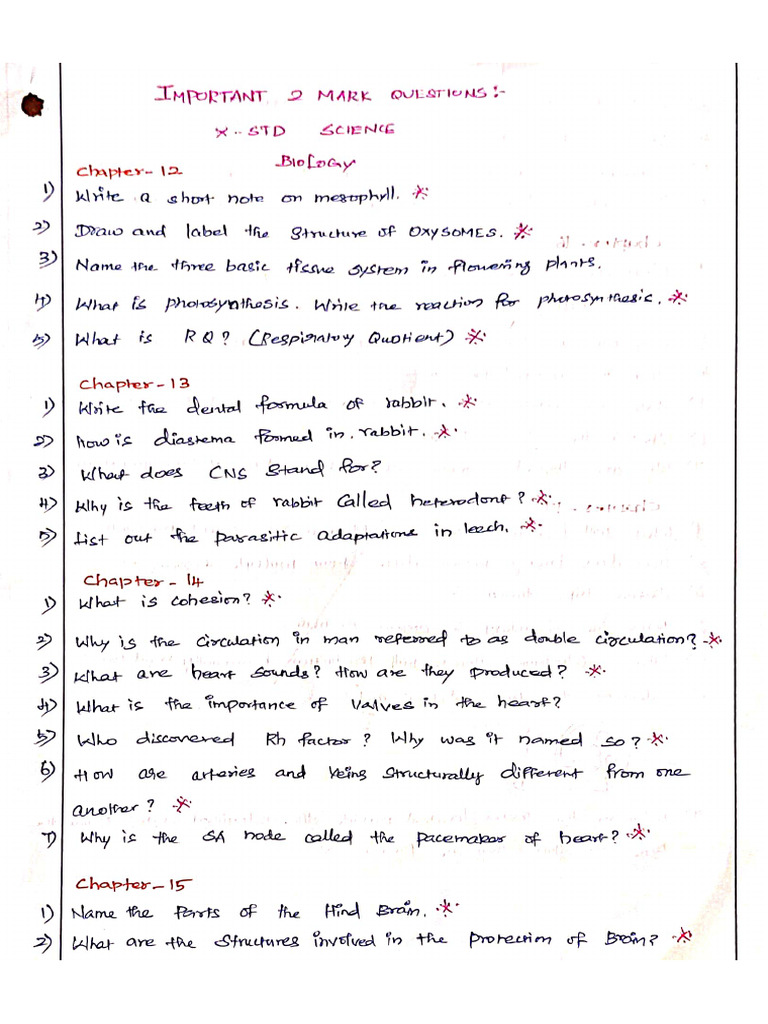 IMPORTANT 2 MARK QUESTIONS:-
X-STD SCIENCE
BIOLOGY
Chapter-12
1) Write a short note on mesophyll. *
2) Draw and label the structure of OXYSOMES. *
3) Name the three basic tissue system in flowering plants.
4) What is photosynthesis. Write the reaction for photosynthesis. *
5) What is RQ? (Respiratory Quotient) *
Chapter-13
1) Write the dental formula of rabbit. *
2) how is diastema formed in rabbit. *
3) What does CNS stand for?
4) Why is the teeth of rabbit called heterodont? *
5) List out the parasitic adaptations in leech. *
Chapter-14
1) What is cohesion? *
2) Why is the circulation in man referred to as double circulation? *
3) What are heart sounds? How are they produced? *
4) What is the importance of valves in the heart?
5) Who discovered Rh factor? Why was it named so? *
6) How are arteries and veins structurally different from one
another? *
7) Why is the SA node called the pacemaker of heart? *
Chapter-15
1) Name the parts of the Hind Brain. *
2) What are the structures involved in the protection of Brain? *